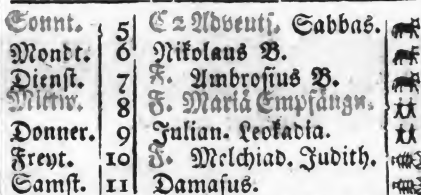 Sonnt. 5 C 2 Adventſ. Sabbas.
Mondt. 6 Nikolaus B.
Dienſt. 7 F. Ambroſius B.
Mittw. 8 F. Mariä Empfängn.
Donner. 9 Julian. Leokadia.
Freyt. 10 F. Melchiad. Judith.
Samſt. 11 Damaſus.